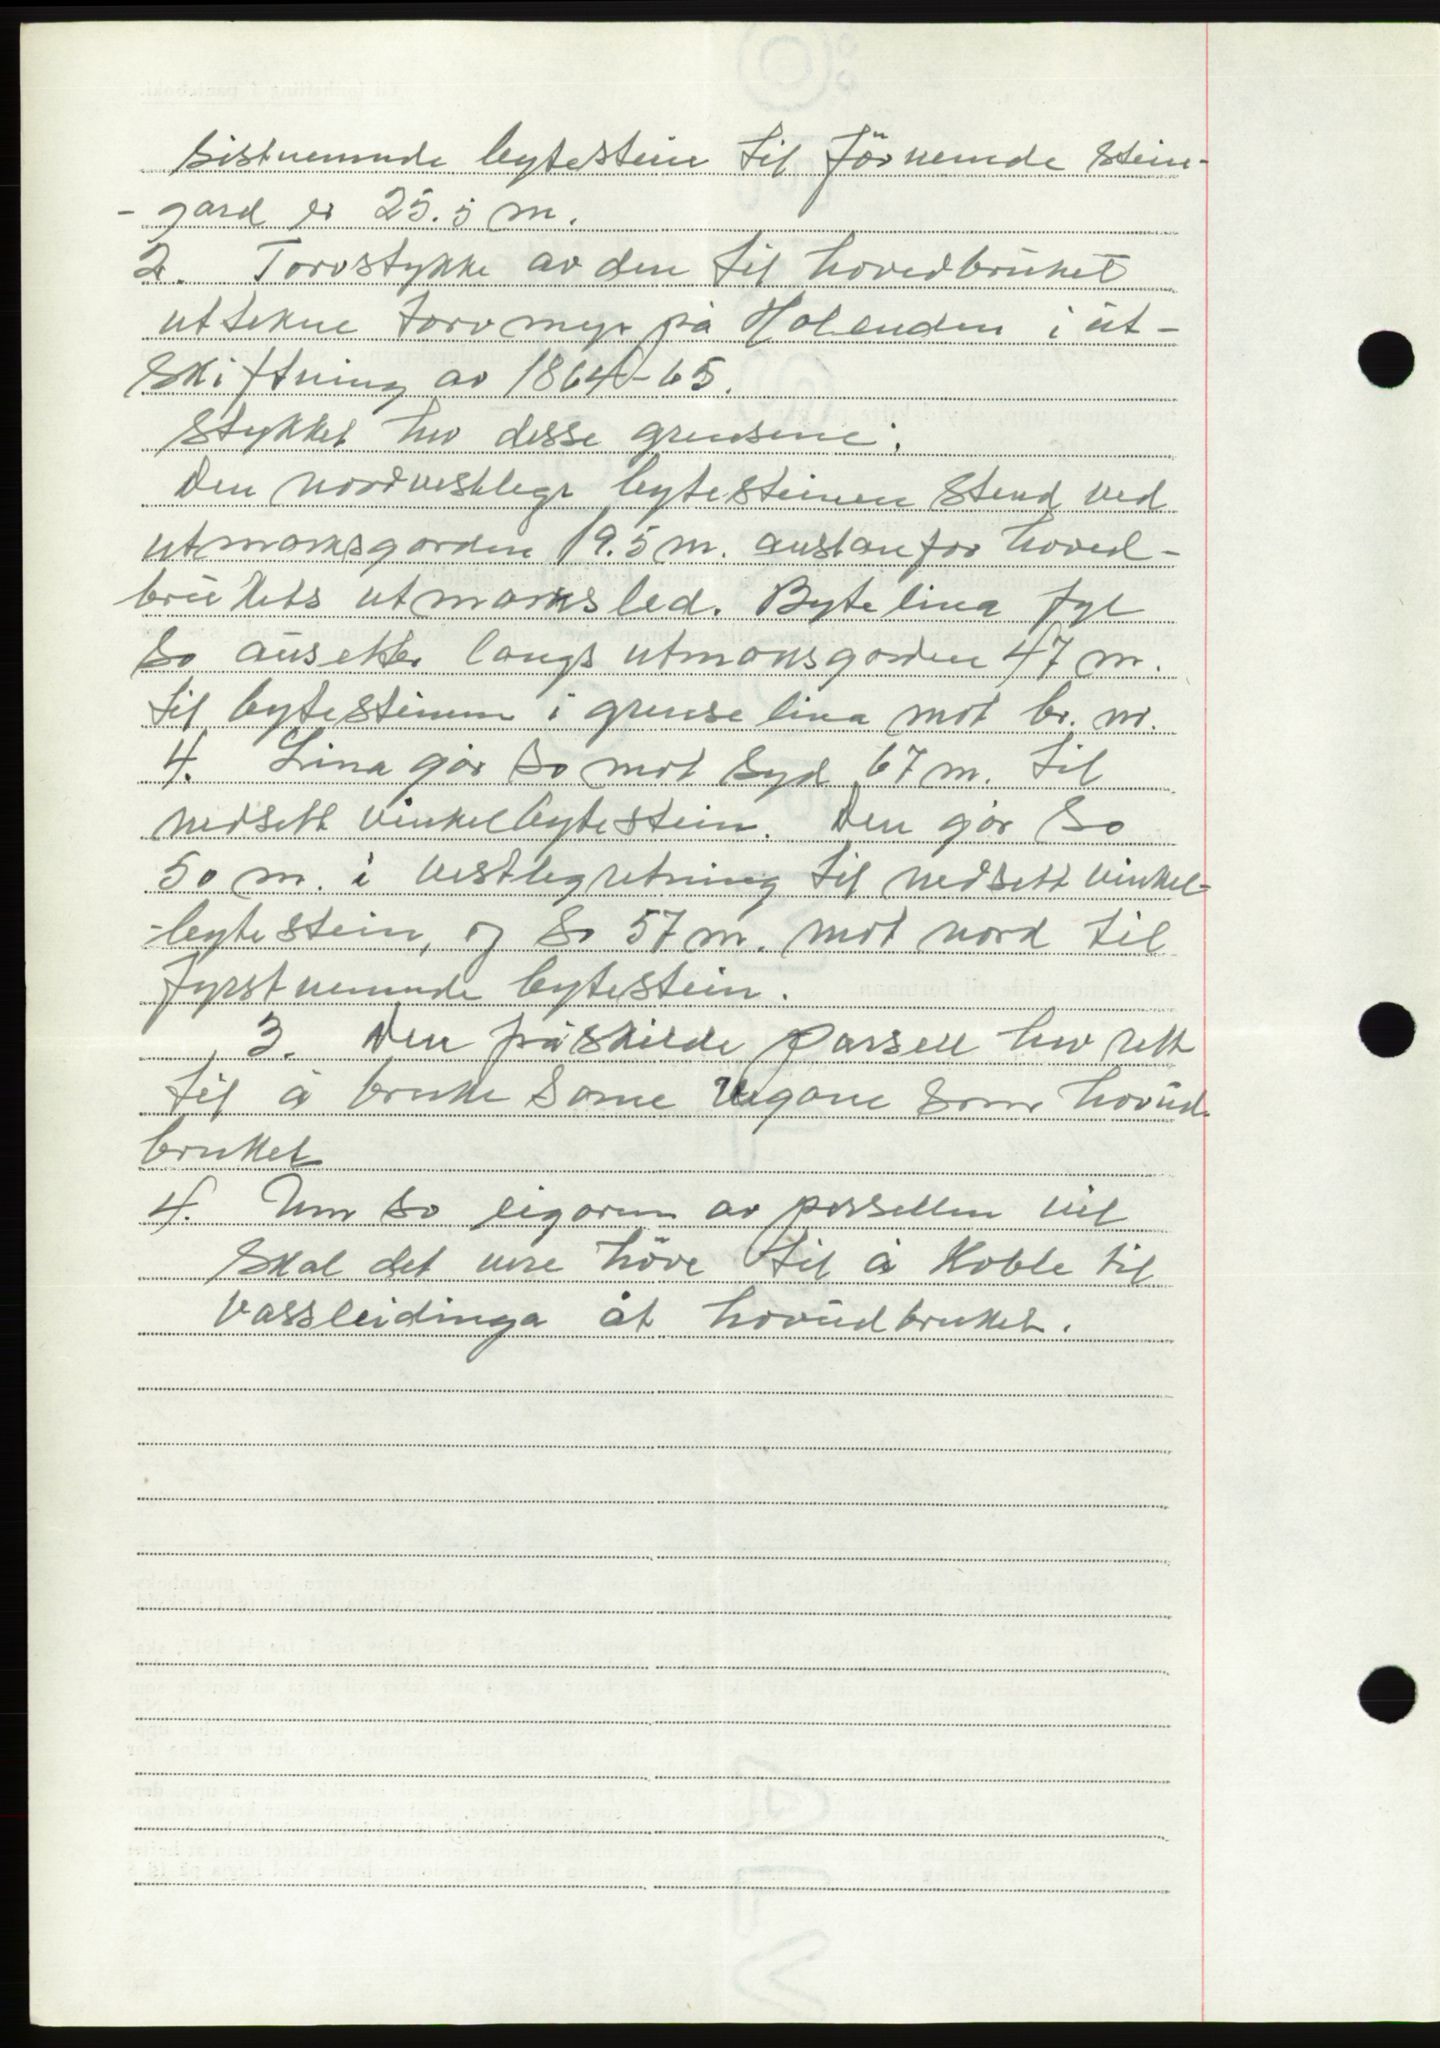 sistnemnde bytestein til förnemde stein-
- gard er 25.5 m.
2. Torvstykke av den til hovedbruket
uttekne torvmyr på Holenden i ut-
skiftning av 1864-65.
Stykket hev desse grensene:
Den nordvestlege bytesteinen stend ved
utmarksgarden 19.5 m. austanfor hoved-
brukets utmarksled. Bytelina fyl
so austetter langs utmarksgarden 47 m.
til bytesteinen i grenselina mot br. nr.
4. Lina går so mot syd 67 m. til
nedsett vinkelbytestein. Den går so
50 m. i vestleg retning til nedsett vinkel-
-bytestein, og so 57 m. mot nord til
fyrstnemnde bytestein.
3. Den fråskilde parsell hev rett
til å bruke same vegane som hovud-
bruket
4. Um so eigaren av parsellen vil
skal det vere höve til å koble til
vassleidinga åt hovudbruket.